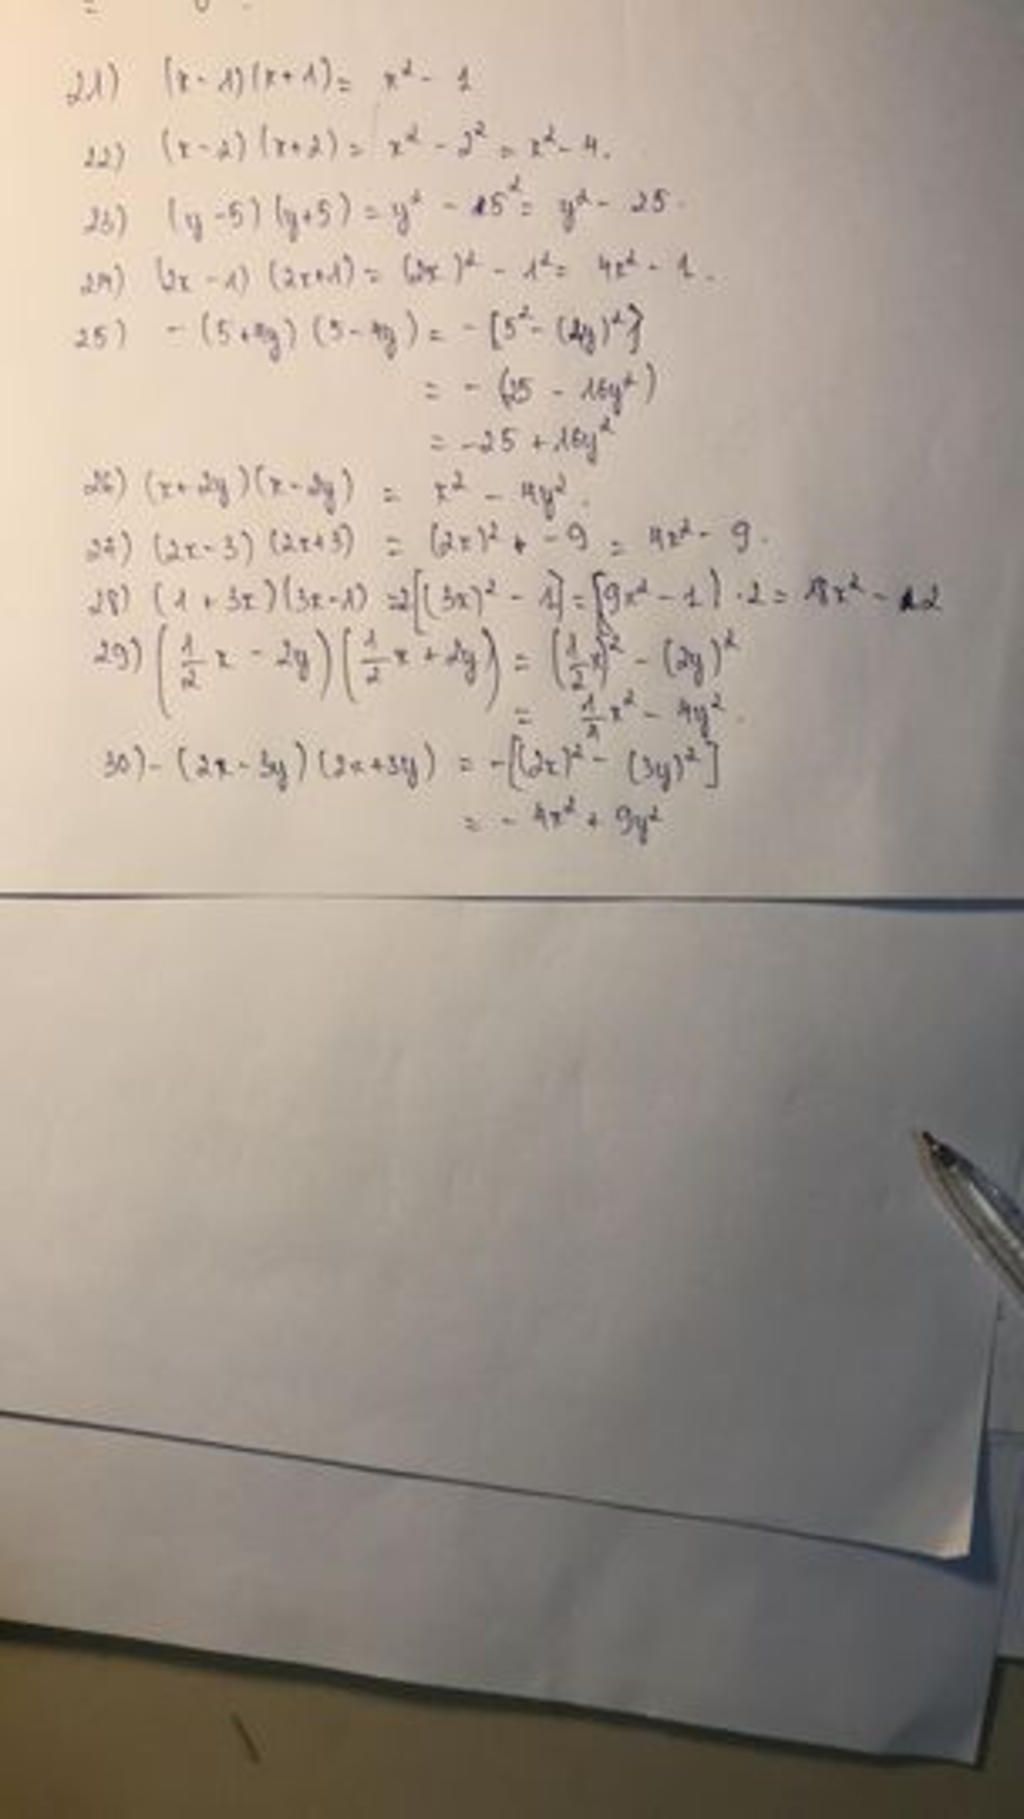 21) (x - 1)(x + 1) = x² - 1
22) (x - 2) (x + 2) = x² - 2² = x² - 4.
23) (y - 5) (y + 5) = y² - 5² = y² - 25.
24) (2x - 1) (2x + 1) = (2x)² - 1² = 4x² - 1.
25) - (5 + 4y) (5 - 4y) = - [5² - (4y)²]
= - (25 - 16y²)
= -25 + 16y²
26) (x + 2y)(x - 2y) = x² - 4y².
27) (2x - 3) (2x + 3) = (2x)² - 9 = 4x² - 9.
28) (1 + 3x)(3x - 1) = 2[(3x)² - 1] = [9x² - 1) . 2 = 18x² - 2
29) (1/2 x - 2y) (1/2 x + 2y) = (1/2 x)² - (2y)²
= 1/4 x² - 4y².
30) - (2x - 3y) (2x + 3y) = -[(2x)² - (3y)²]
= - 4x² + 9y²